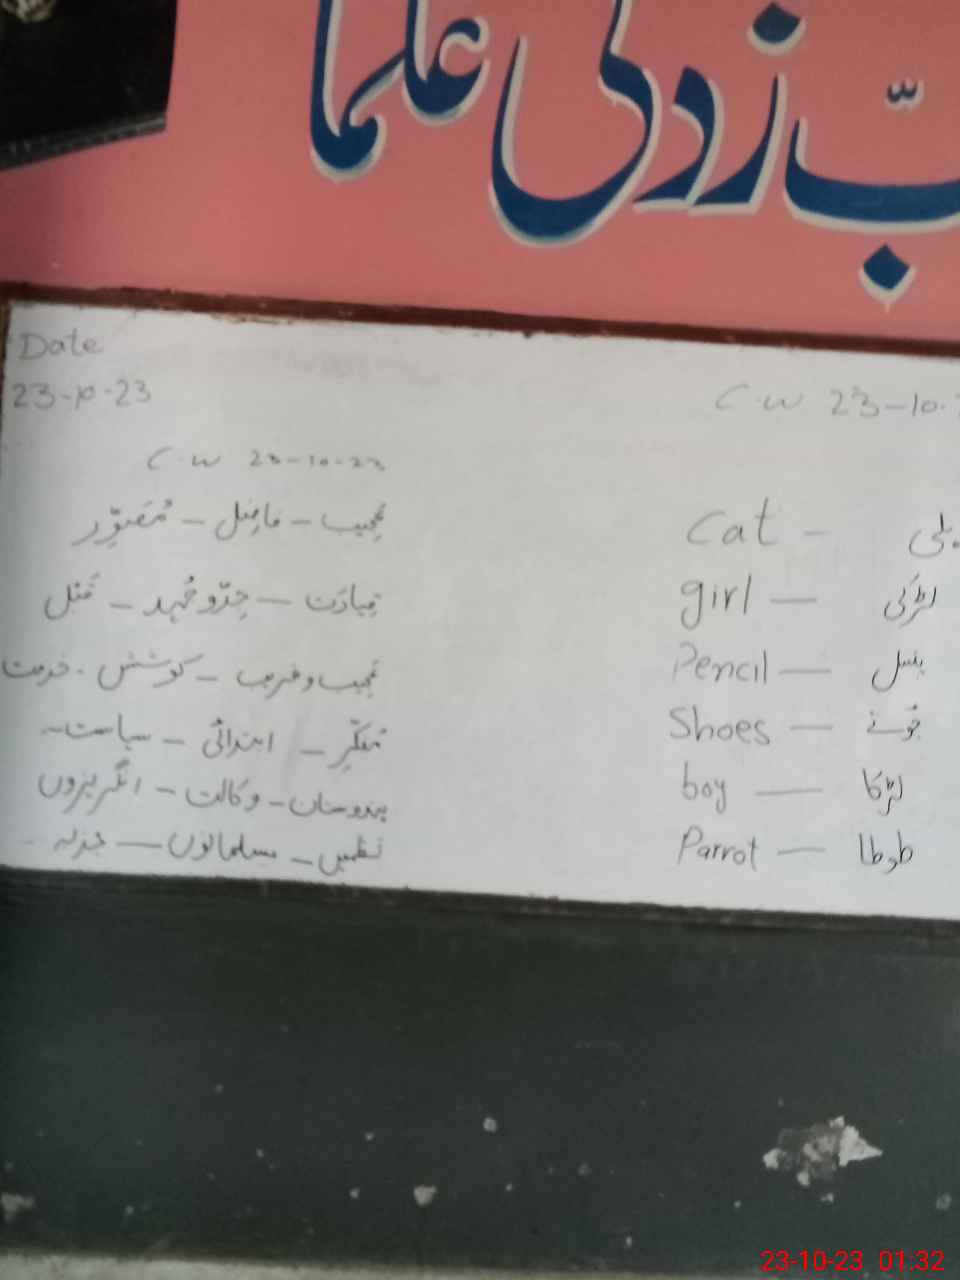 ربّ زدنی علما
Date
23-10-23
C.W 23-10-
C.W 23-10-23
عجیب - فاضل - مُصَوِّر
قیادَت - جِدّوجُہد - قبل
عجیب و غریب - کوشش - خدمت
مُفکّرِ - ابتدائی - سیاست -
ہندوستان - وکالت - انگریزوں
نظمیں - مسلمانوں - جذبہ
Cat - بلی
girl - لڑکی
Pencil - پنسل
Shoes - جُوتے
boy - لڑکا
Parrot - طوطا
23-10-23 01:32